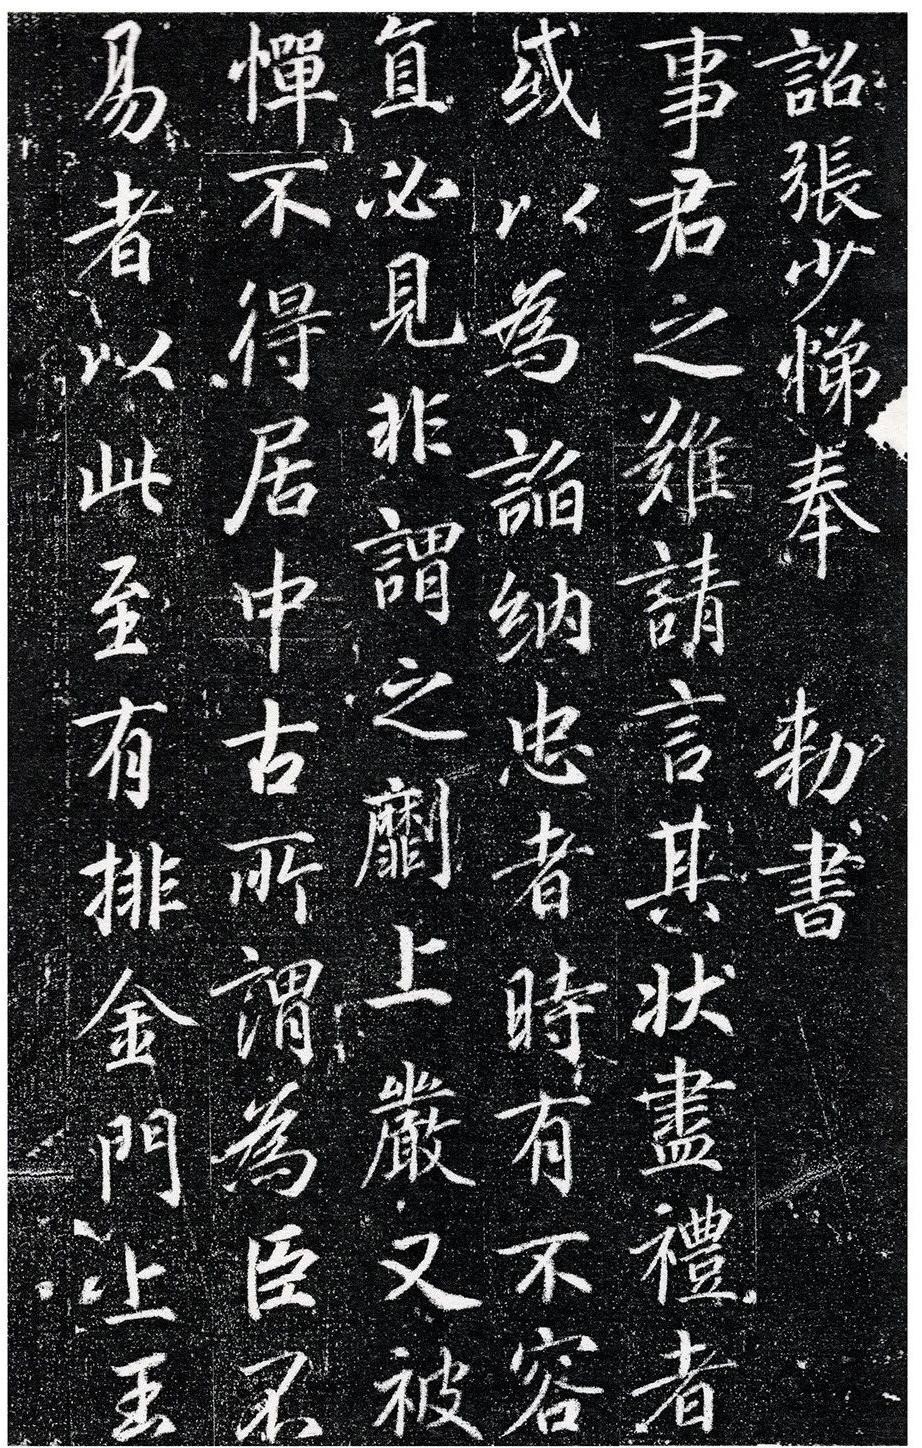 詔張少悌奉　勑書
事君之難請言其狀盡禮者
或以為諂納忠者時有不容
直必見非謂之劘上嚴又被
憚不得居中古所謂為臣不
易者以此至有排金門上玉